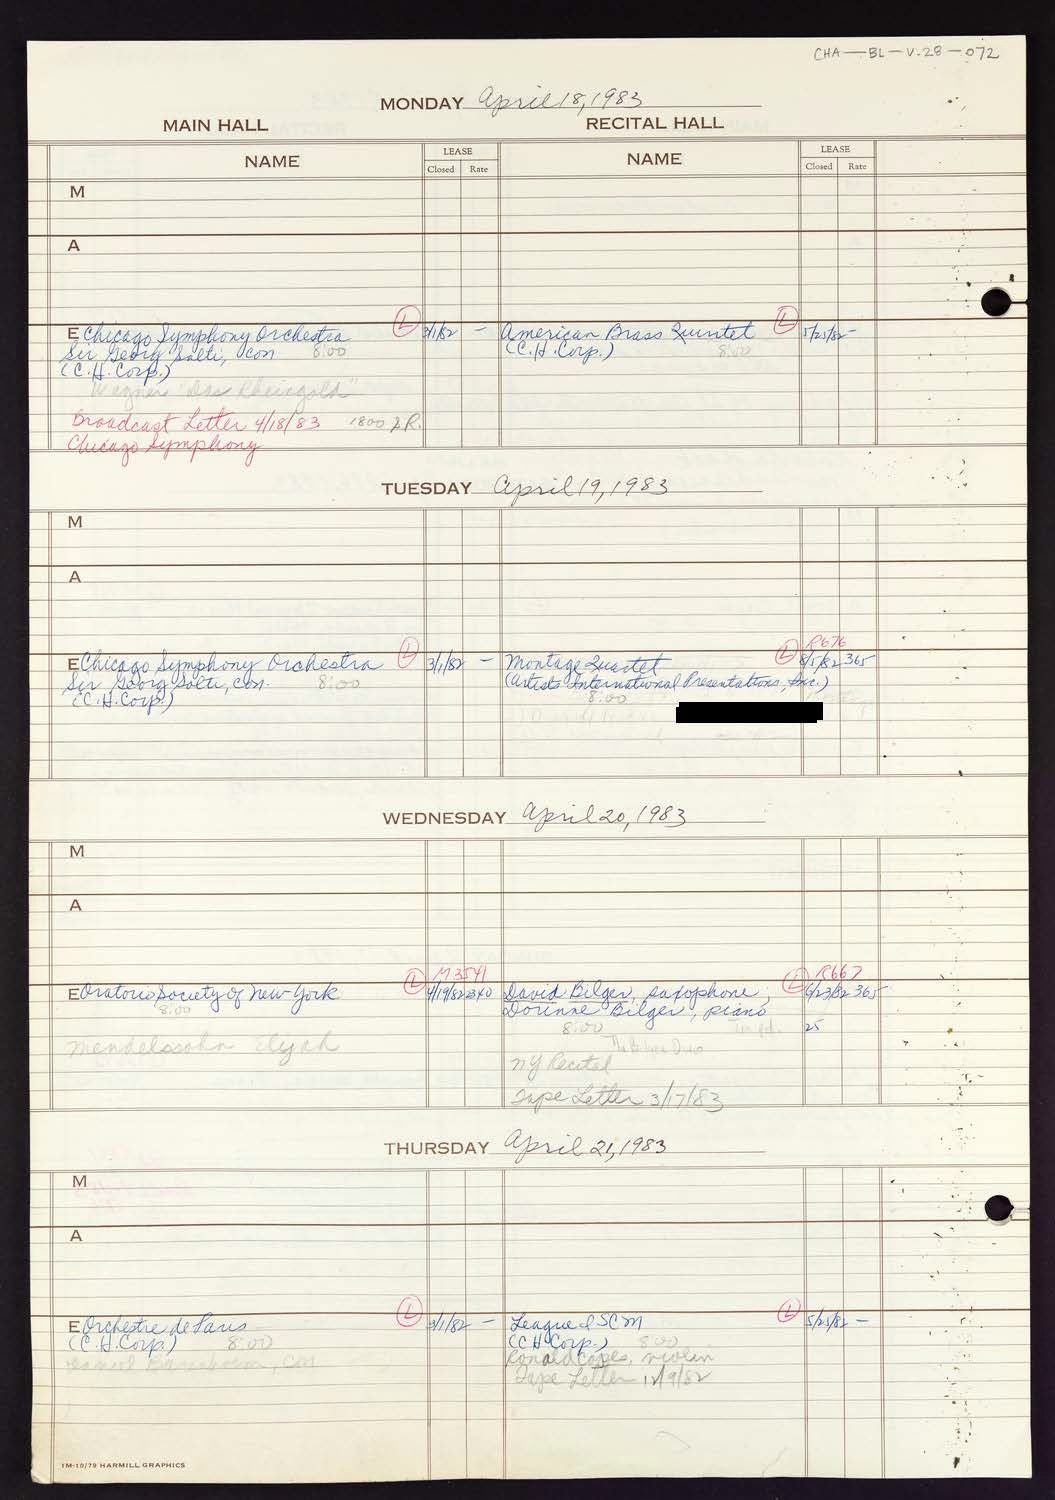 CHA-BL-V.28-072
MONDAY April 18, 1983
MAIN HALL RECITAL HALL
NAME LEASE NAME LEASE
Closed Rate Closed Rate
M
A
E Chicago Symphony Orchestra L 3/1/82 - American Brass Quintet L 5/25/82 -
Sir Georg Solti, con 8:00 (C.H. Corp.) 8:00
(C.H. Corp.)
Wagner "Das Rheingold"
Broadcast Letter 4/18/83 1800 S.R.
Chicago Symphony
TUESDAY April 19, 1983
M
A
R676
E Chicago Symphony Orchestra L 3/1/82 - Montage Quartet L 8/5/82 365
Sir Georg Solti, con. 8:00 (Artists International Presentations, Inc.)
(C.H. Corp.) 8:00
WEDNESDAY April 20, 1983
M
A
M3541 R667
E Oratorio Society of New York L 4/19/82 2340 David Bilger, saxophone, L 6/23/82 365
8:00 Dorinne Bilger, piano
8:00 25
Mendelssohn Elijah The Bilger Duo
NY Recital
Tape Letter 3/17/83
THURSDAY April 21, 1983
M
A
E Orchestre de Paris L 3/1/82 - League ISCM L 5/25/82 -
(C.H. Corp.) 8:00 (CH Corp.) 8:00
Daniel Barenboim, con Ronald Copes, violin
Tape Letter 12/9/82
1M-10/79 HARMILL GRAPHICS